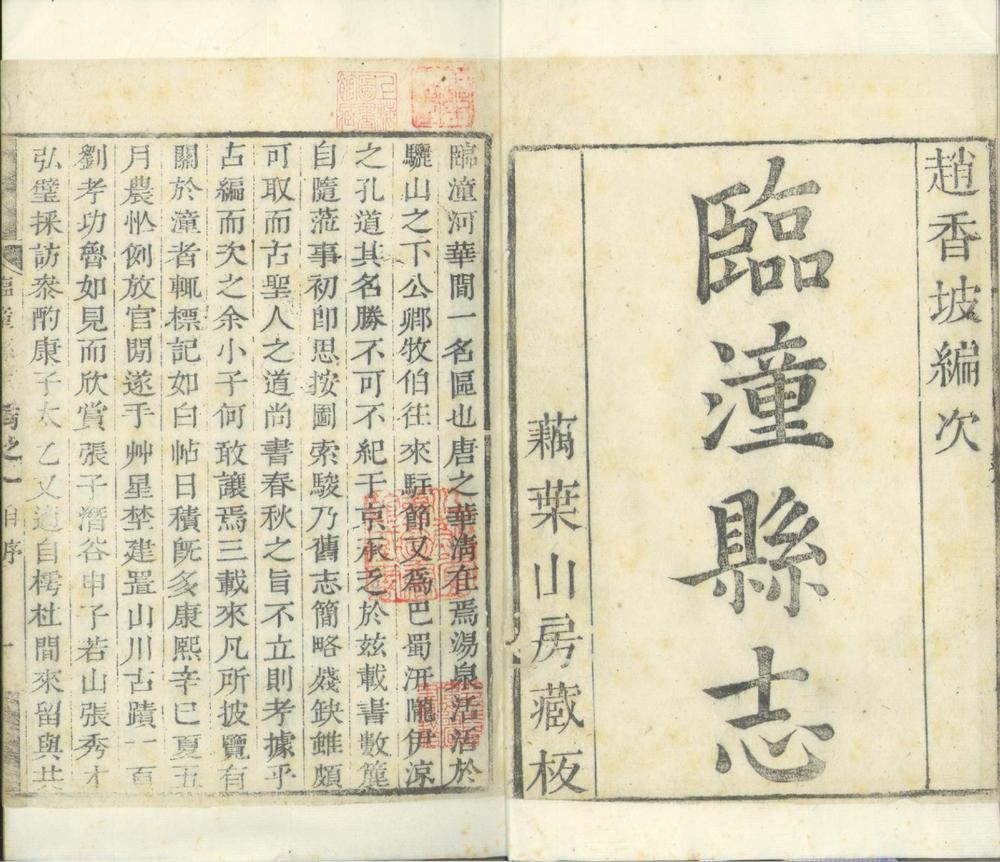 趙香坡編次
臨潼縣志
藕葉山房藏板
臨潼河華間一名區也唐之華清在焉湯泉活活於
驪山之下公卿牧伯往來駐節又為巴蜀汧隴伊涼
之孔道其名勝不可不紀于京承乏於茲載書數簏
自隨蒞事初卽思按圖索駿乃舊志簡略殘缺雖頗
可取而古聖人之道尚書春秋之旨不立則考據乎
占編而次之余小子何敢讓焉三載來凡所披覽有
關於潼者輒標記如白帖日積旣多康熙辛巳夏五
月農忙例放官閒遂手艸星埜建置山川古蹟一百
劉孝功魯如見而欣賞張子潛谷申子若山張秀才
弘璧採訪叅酌康子太乙又適自樗杜間來留與共
臨潼縣志
自序
一